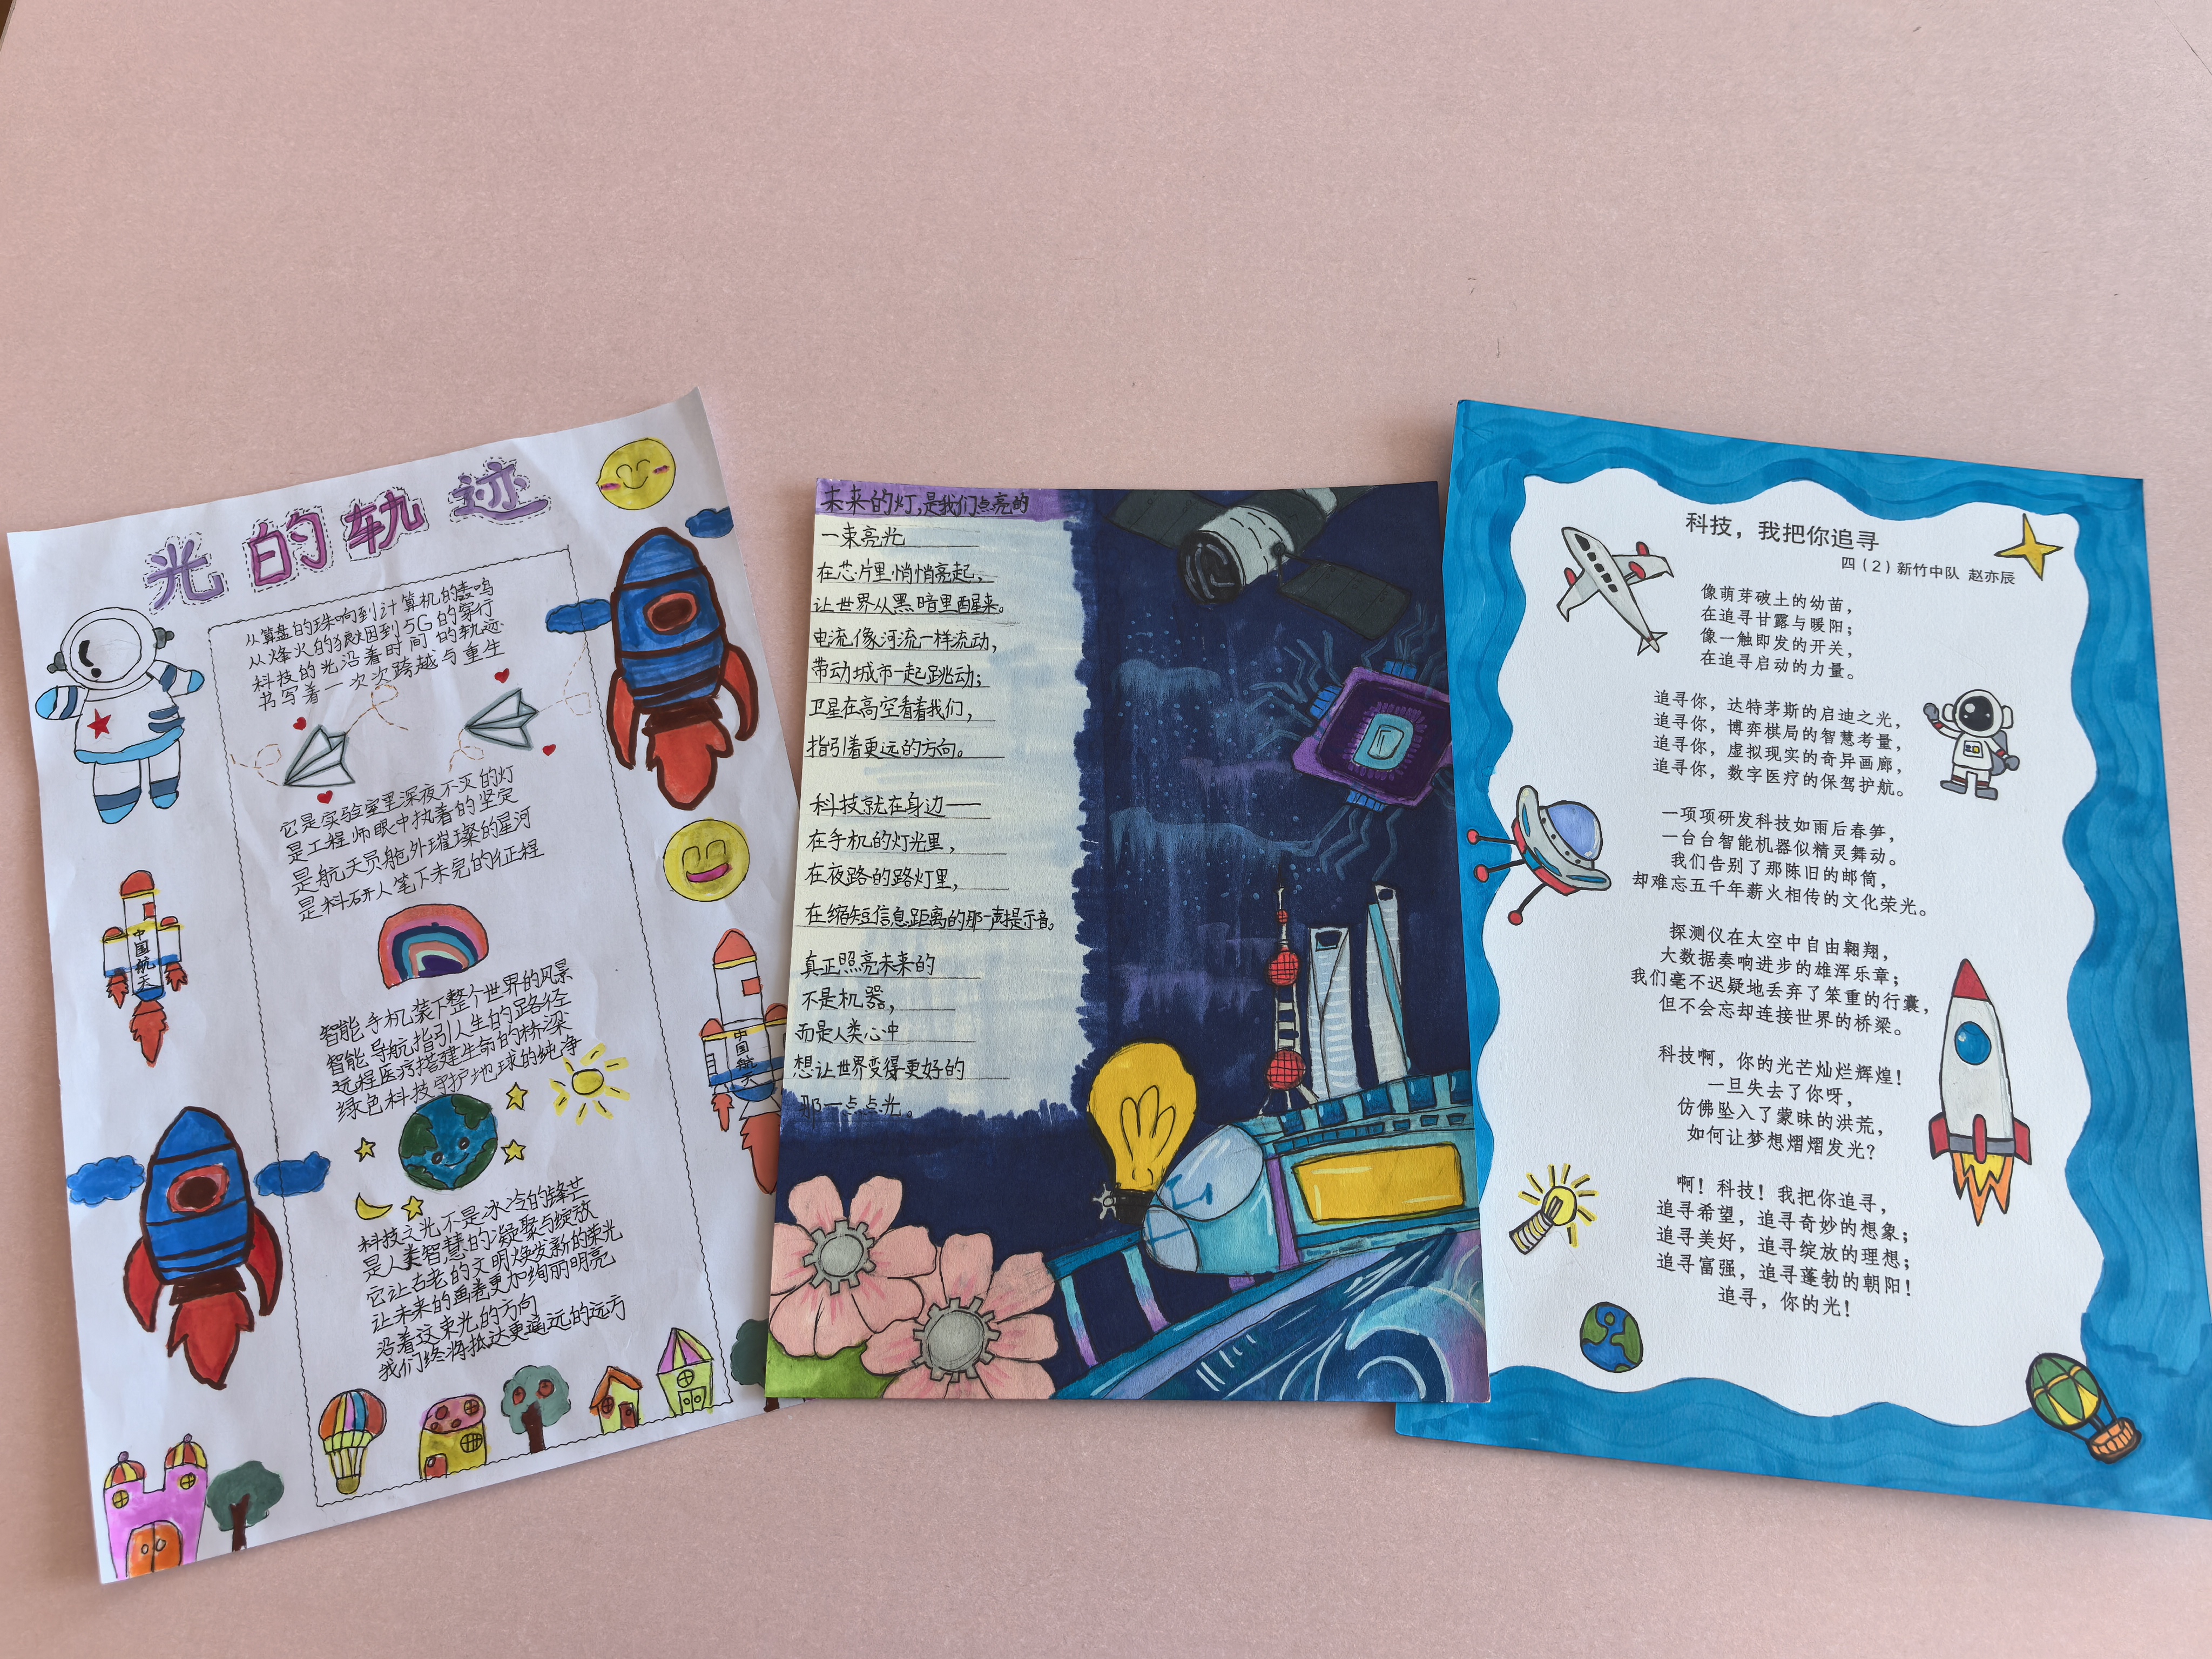 光的轨迹
从算盘的珠响到计算机的轰鸣
从烽火的狼烟到5G的穿行
科技的光沿着时间的轨迹
书写着一次次跨越与重生
它是实验室里深夜不灭的灯
是工程师眼中执着的坚定
是航天员舱外璀璨的星河
是科研人笔下未完的征程
智能手机装下整个世界的风景
智能导航指引人生的路径
远程医疗搭建生命的桥梁
绿色科技守护地球的纯净
科技之光,不是冰冷的锋芒
是人类智慧的凝聚与绽放
它让古老的文明焕发新的荣光
让未来的画卷更加绚丽明亮
沿着这束光的方向
我们终将抵达更遥远的远方
中国航天
中国航天
未来的灯,是我们点亮的
一束亮光
在芯片里悄悄亮起,
让世界从黑暗里醒来。
电流像河流一样流动,
带动城市一起跳动;
卫星在高空看着我们,
指引着更远的方向。
科技就在身边——
在手机的灯光里,
在夜路的路灯里,
在缩短信息距离的那一声提示音。
真正照亮未来的
不是机器,
而是人类心中
想让世界变得更好的
那一点点光。
科技，我把你追寻
四（2）新竹中队 赵亦辰
像萌芽破土的幼苗，
在追寻甘露与暖阳；
像一触即发的开关，
在追寻启动的力量。
追寻你，达特茅斯的启迪之光，
追寻你，博弈棋局的智慧考量，
追寻你，虚拟现实的奇异画廊，
追寻你，数字医疗的保驾护航。
一项项研发科技如雨后春笋，
一台台智能机器似精灵舞动。
我们告别了那陈旧的邮筒，
却难忘五千年薪火相传的文化荣光。
探测仪在太空中自由翱翔，
大数据奏响进步的雄浑乐章；
我们毫不迟疑地丢弃了笨重的行囊，
但不会忘却连接世界的桥梁。
科技啊，你的光芒灿烂辉煌！
一旦失去了你呀，
仿佛坠入了蒙昧的洪荒，
如何让梦想熠熠发光？
啊！科技！我把你追寻，
追寻希望，追寻奇妙的想象；
追寻美好，追寻绽放的理想；
追寻富强，追寻蓬勃的朝阳！
追寻，你的光！